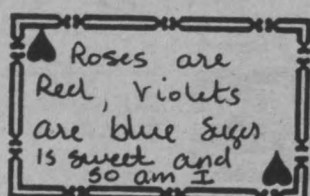 Roses are
Red, Violets
are blue Suger
is sweet and
so am I